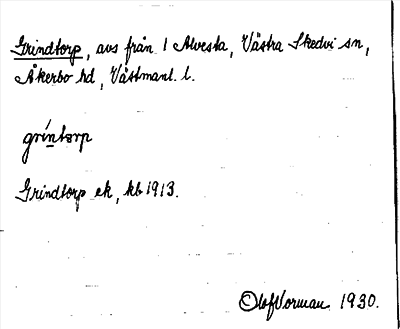 Grindtorp, avs från 1 Alvesta, Västra Skedvi sn,
Åkerbo hd, Västmanl. l.
grintorp
Grindtorp ek, kb 1913.
Olof Vorman 1930.